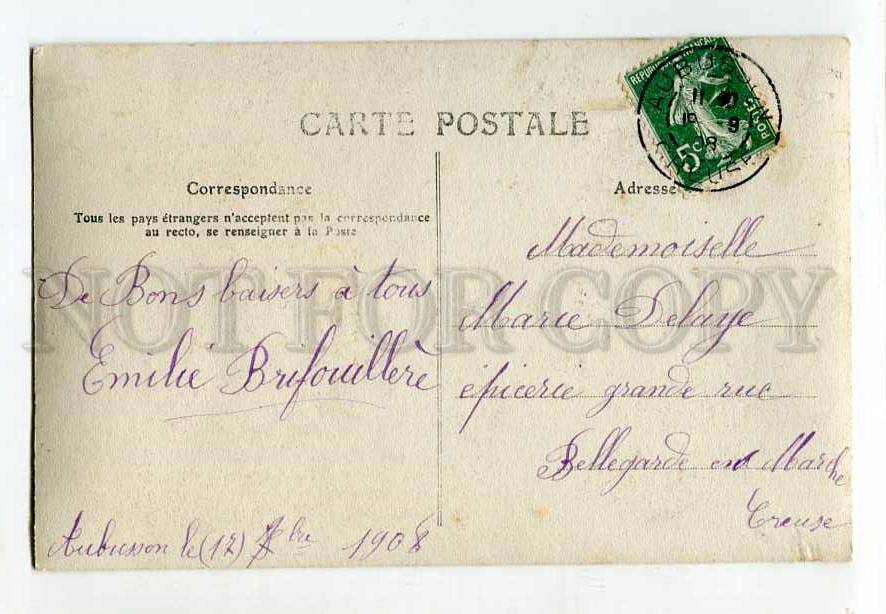 CARTE POSTALE
Correspondance
Tous les pays étrangers n'acceptent pas la correspondance
au recto, se renseigner à la Poste
De Bons baisers à tous
Emilie Brifouillère
Aubusson le (12) bre 1908
Adresse
Mademoiselle
Marie Delaye
épicerie grande rue
Bellegarde en Marche
Creuse
5c
NOT FOR COPY